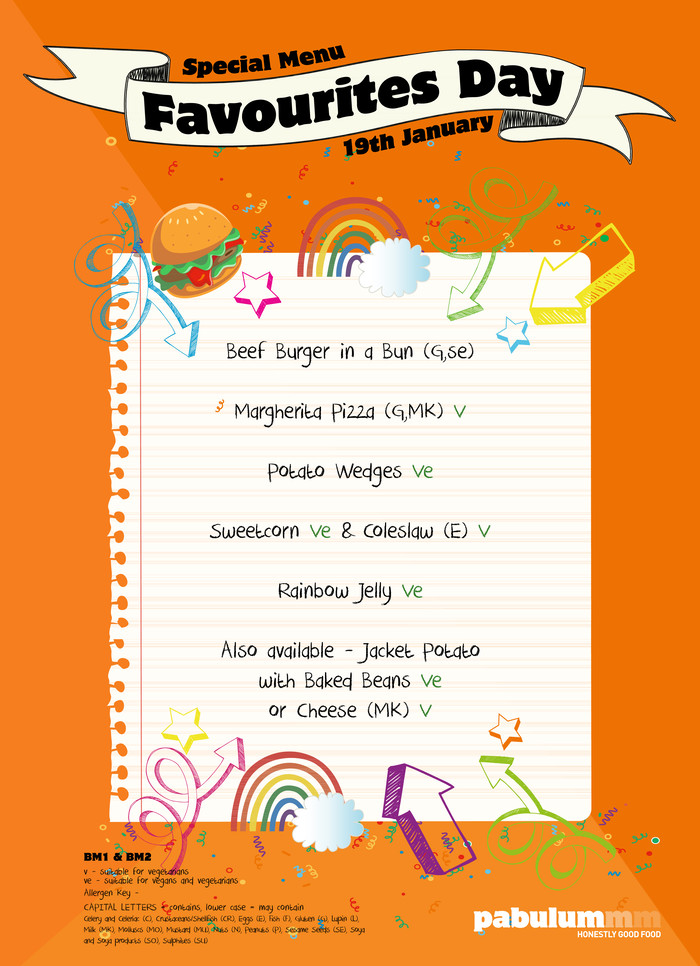 Special Menu
Favourites Day
19th January
Beef Burger in a Bun (G,se)
Margherita Pizza (G,MK) V
Potato Wedges Ve
Sweetcorn Ve & Coleslaw (E) V
Rainbow Jelly Ve
Also available - Jacket Potato
with Baked Beans Ve
or Cheese (MK) V
BM1 & BM2
v - suitable for vegetarians
ve - suitable for vegans and vegetarians
Allergen Key -
CAPITAL LETTERS = contains, lower case = may contain
Celery and Celeriac (C), Crustaceans/Shellfish (CR), Eggs (E), Fish (F), Gluten (G), Lupin (L),
Milk (MK), Molluscs (MO), Mustard (MU), Nuts (N), Peanuts (P), Sesame Seeds (SE), Soya
and Soya products (SO), Sulphites (SU)
pabulummm
HONESTLY GOOD FOOD